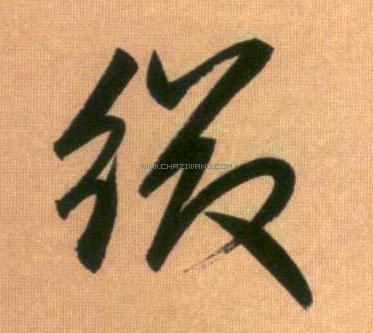 後
www.chaziwang.com